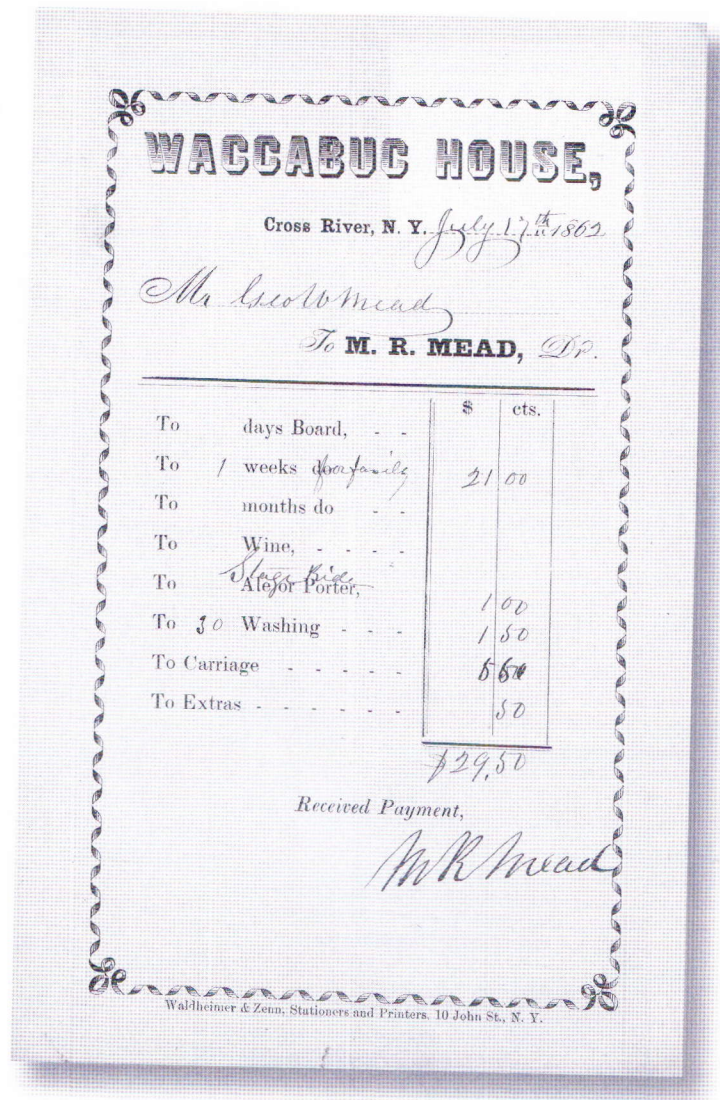 WACCABUC HOUSE,
Cross River, N. Y. July 17th 1862
Mr Geo W Mead
To M. R. MEAD, Dr.
$ cts.
To days Board, - -
To 1 weeks do for family 21 00
To months do - -
To Wine, - - - -
Stage Ride
To Ale or Porter, 1 00
To 30 Washing - - - 1 50
To Carriage - - - - - 5 50
To Extras - - - - - - 50
$29,50
Received Payment,
M R Mead
Waldheimer & Zenn, Stationers and Printers. 10 John St., N. Y.